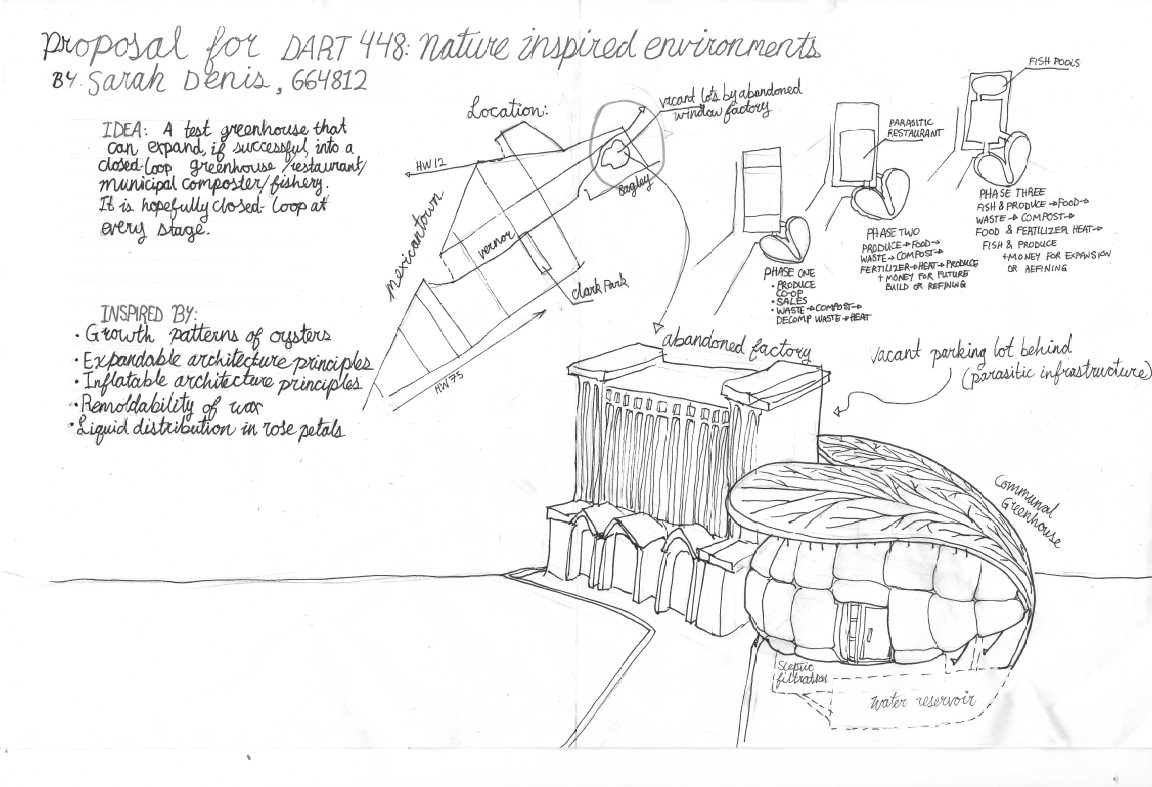 Proposal for DART 448: Nature inspired environments
BY: Sarah Denis, 664812
IDEA: A test greenhouse that
can expand, if successful, into a
closed-loop greenhouse/restaurant/
municipal composter/fishery.
It is hopefully closed-loop at
every stage.
INSPIRED BY:
• Growth patterns of oysters
• Expandable architecture principles
• Inflatable architecture principles
• Remoldability of wax
• Liquid distribution in rose petals
Location:
vacant lots by abandoned
window factory
HW12
Bagley
mexicantown
vernor
Clark Park
HW75
PHASE ONE
• PRODUCE
CO-OP
• SALES
• WASTE→COMPOST→
DECOMP WASTE→HEAT
PARASITIC
RESTAURANT
PHASE TWO
PRODUCE→FOOD→
WASTE→COMPOST→
FERTILIZER→HEAT→PRODUCE
+ MONEY FOR FUTURE
BUILD OR REFINING
FISH POOLS
PHASE THREE
FISH & PRODUCE→FOOD→
WASTE→COMPOST→
FOOD & FERTILIZER HEAT→
FISH & PRODUCE
+MONEY FOR EXPANSION
OR REFINING
abandoned factory
vacant parking lot behind
(parasitic infrastructure)
Communal
Greenhouse
Sceptic
filtration
Water reservoir